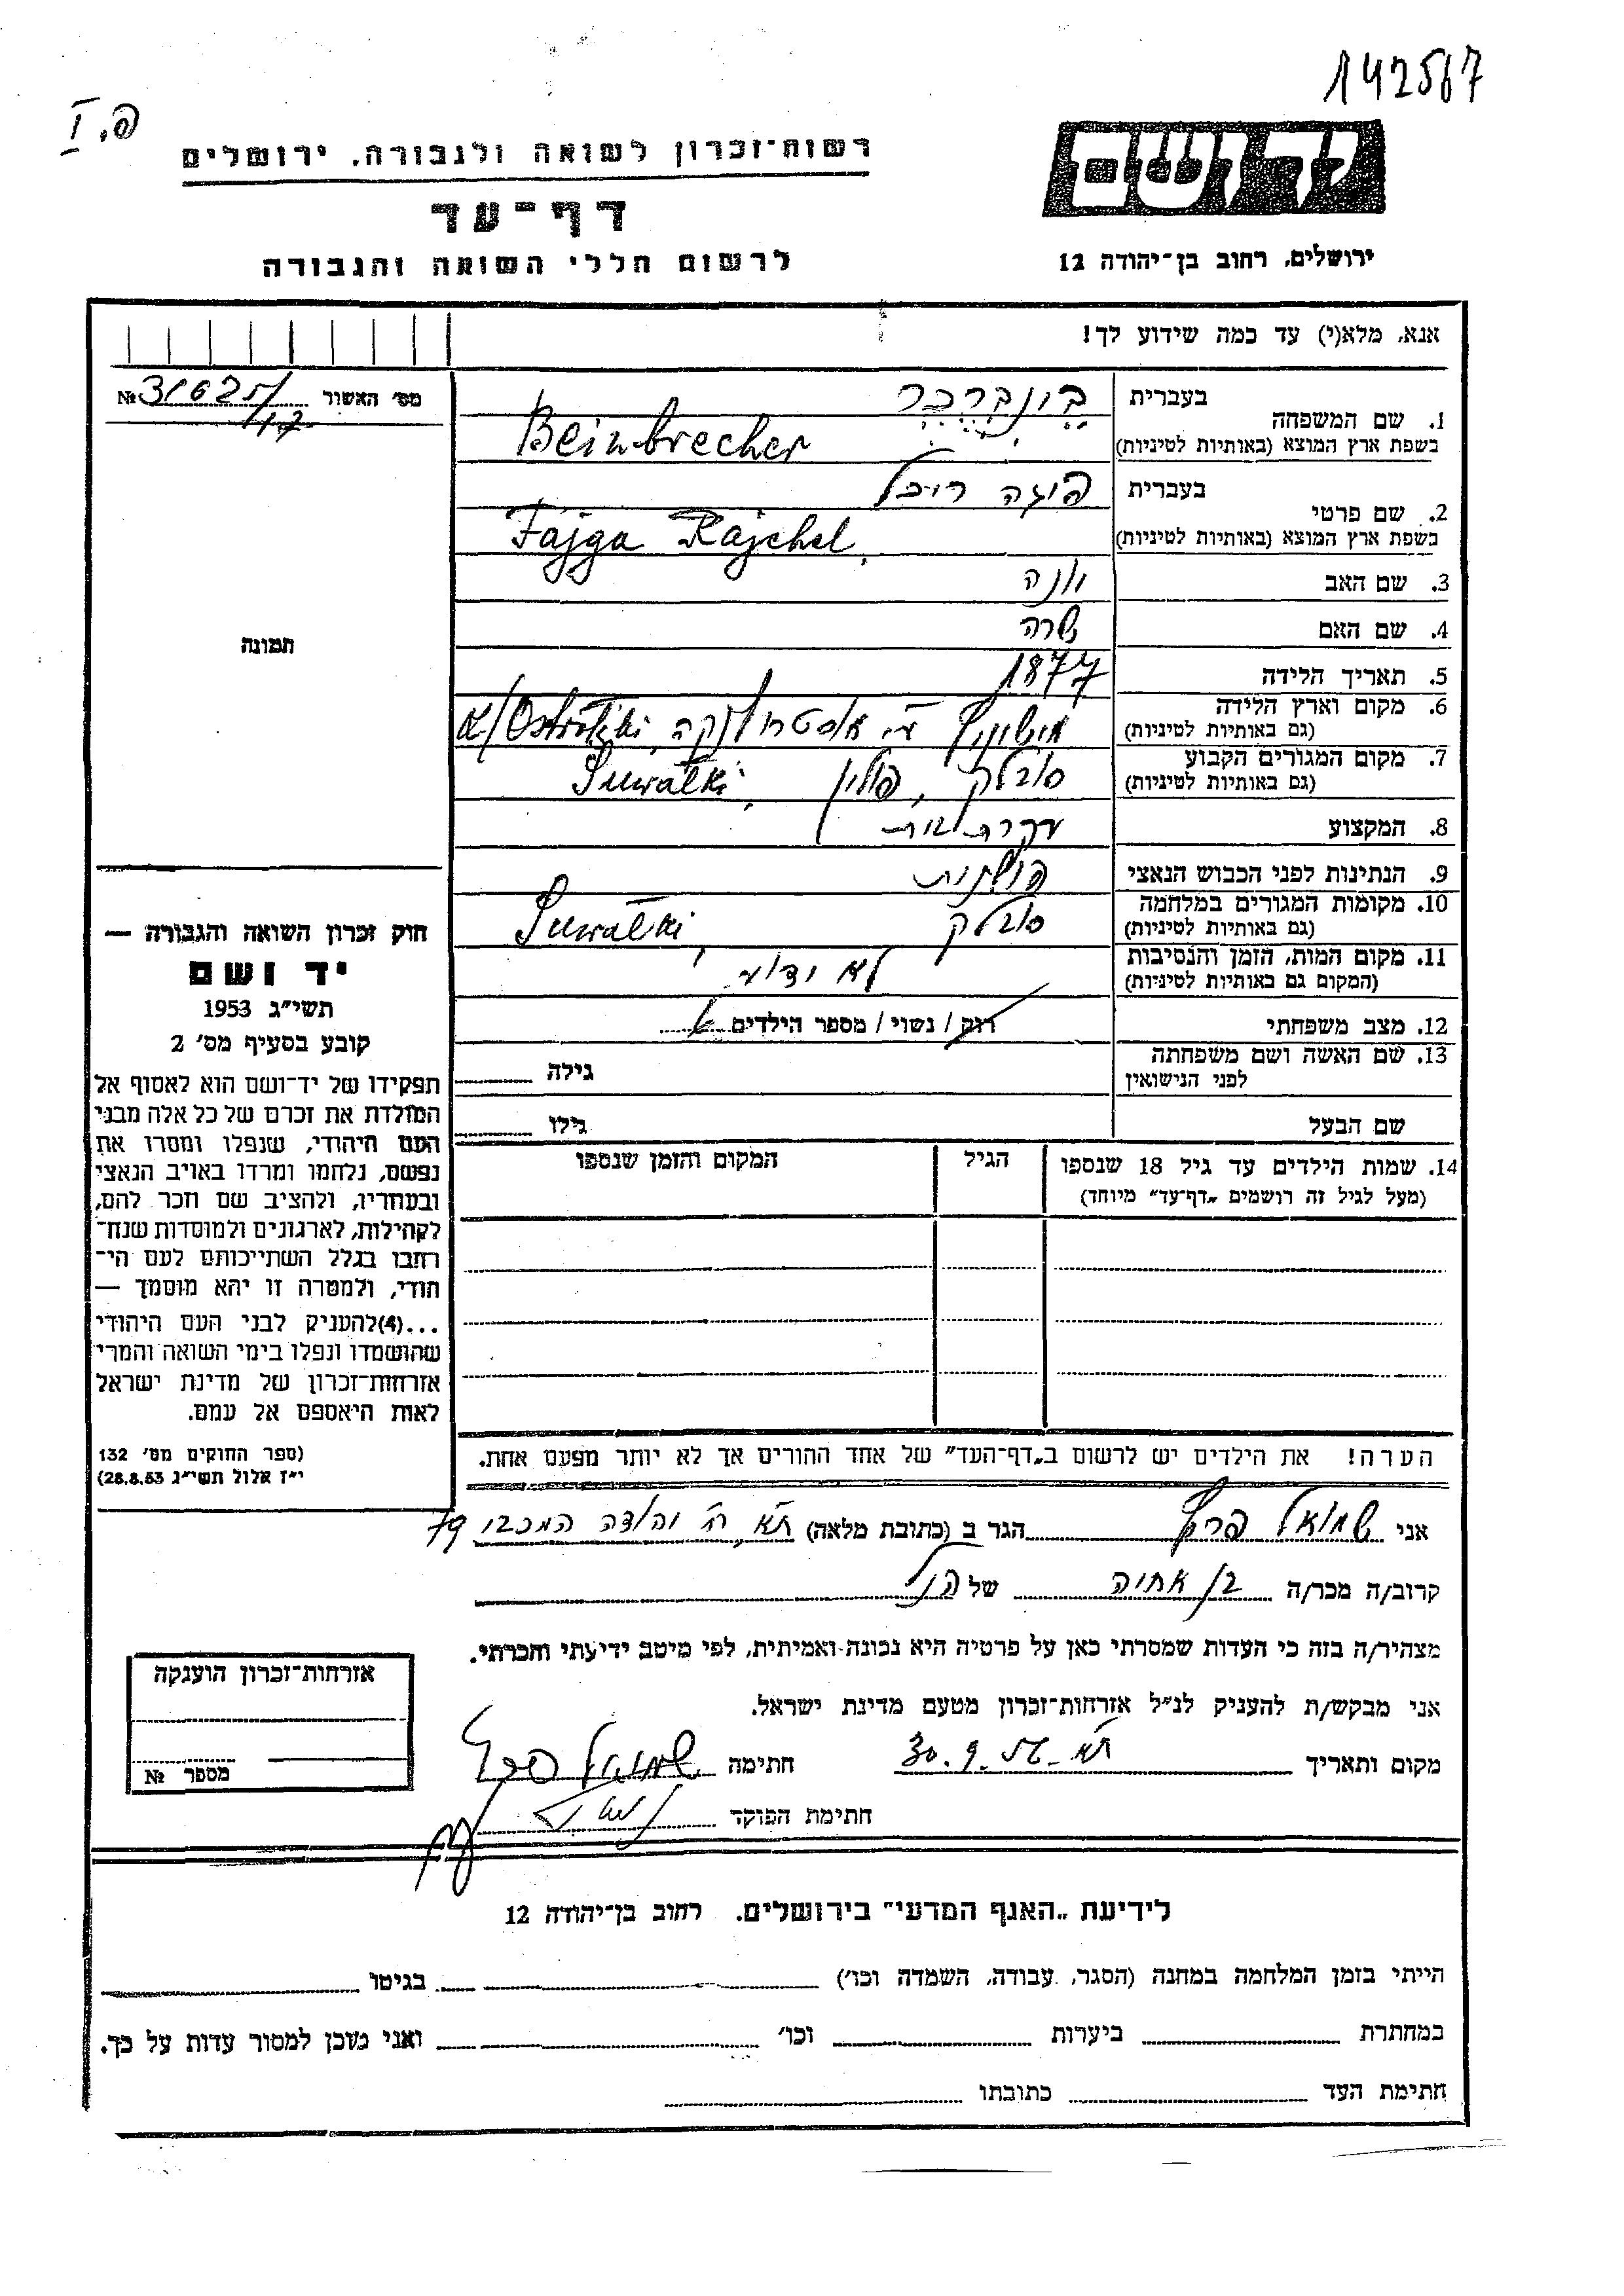 142567
פ. I
רשות־זכרון לשואה ולגבורה, ירושלים
יד ושם
דף־עד
לרשום חללי השואה והגבורה
ירושלים, רחוב בן־יהודה 12
אנא, מלא(י) עד כמה שידוע לך!
מס׳ האשור №31625/17
1. שם המשפחה
בעברית ביינברכר
בשפת ארץ המוצא (באותיות לטיניות) Beinbrecher
2. שם פרטי
בעברית פיגה רייכל
בשפת ארץ המוצא (באותיות לטיניות) Fajga Rajchel
3. שם האב יונה
4. שם האם שרה
5. תאריך הלידה 1877
6. מקום וארץ הלידה
(גם באותיות לטיניות)
7. מקום המגורים הקבוע סובלק, פולין Suwałki
(גם באותיות לטיניות)
8. המקצוע עקרת בית
9. הנתינות לפני הכבוש הנאצי פולנית
10. מקומות המגורים במלחמה סובלק Suwałki
(גם באותיות לטיניות)
11. מקום המות, הזמן והנסיבות לא ידוע
(המקום גם באותיות לטיניות)
12. מצב משפחתי רווק / נשוי / מספר הילדים
13. שם האשה ושם משפחתה גילה
לפני הנישואין
שם הבעל גילו
14. שמות הילדים עד גיל 18 שנספו הגיל המקום והזמן שנספו
(מעל לגיל זה רושמים „דף־עד” מיוחד)
הערה! את הילדים יש לרשום ב„דף־העד” של אחד ההורים אך לא יותר מפעם אחת.
תמונה
חוק זכרון השואה והגבורה —
יד ושם
תשי״ג 1953
קובע בסעיף מס׳ 2
תפקידו של יד־ושם הוא לאסוף אל
המולדת את זכרם של כל אלה מבני
העם היהודי, שנפלו ומסרו את
נפשם, נלחמו ומרדו באויב הנאצי
ובעוזריו, ולהציב שם וזכר להם,
לקהילות, לארגונים ולמוסדות שנח־
רבו בגלל השתייכותם לעם הי־
הודי, ולמטרה זו יהא מוסמך —
...(4)להעניק לבני העם היהודי
שהושמדו ונפלו בימי השואה והמרי
אזרחות־זכרון של מדינת ישראל
לאות היאספם אל עמם.
(ספר החוקים מס׳ 132
י״ז אלול תשי״ג 28.8.53)
אני שמואל פרנק הגר ב (כתובת מלאה) ת״א, יהודה המכבי 79
קרוב/ה מכר/ה בן אחיה של הנ״ל
מצהיר/ה בזה כי העדות שמסרתי כאן על פרטיה היא נכונה ואמיתית, לפי מיטב ידיעתי והכרתי.
אני מבקש/ת להעניק לנ״ל אזרחות־זכרון מטעם מדינת ישראל.
מקום ותאריך ת״א 30.9.56 חתימה שמואל פרנק
חתימת הפוקד
אזרחות־זכרון הוענקה
מספר №
לידיעת „האגף המדעי” בירושלים. רחוב בן־יהודה 12
הייתי בזמן המלחמה במחנה (הסגר, עבודה, השמדה וכו׳) בגיטו
במחתרת ביערות וכו׳ ואני מוכן למסור עדות על כך.
חתימת העד כתובתו